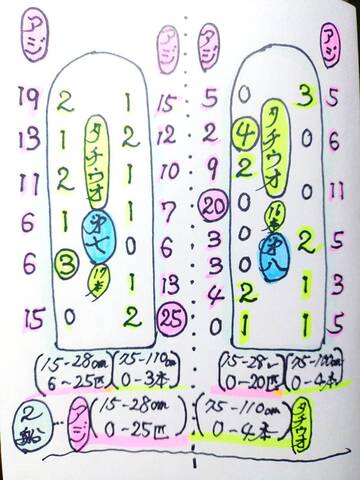 アジ アジ アジ アジ
19 2 1 15 5 0 3 5
13 1 2 12 2 4 0 6
11 2 10 9 2 0 11
6 1 1 7 20 0
6 1 6 3 0 2 5
6 3 1 13 3 0
15 0 2 25 4 2 1 3
0 1 1 5
タチウオ 第七 17本
タチウオ 16本 第八
(15-28cm 6~25匹) (75-110cm 0-3本) (15-28 0~20匹) (75-110cm 0-4本)
2船 アジ (15-28cm 0~25匹) (75-110cm 0-4本) タチウオ